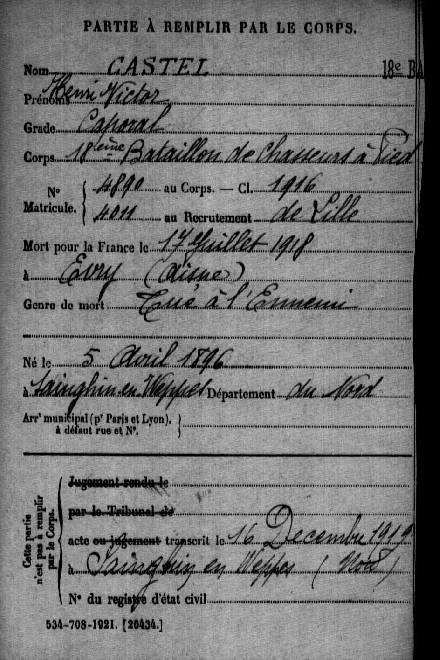 PARTIE À REMPLIR PAR LE CORPS.
Nom CASTEL 18e BA
Prénoms Henri Victor
Grade Caporal
Corps 18eme Bataillon de Chasseurs à Pied
N° Matricule. 4890 au Corps. — Cl. 1916
4011 au Recrutement de Lille
Mort pour la France le 17 Juillet 1918
à Evry (Aisne)
Genre de mort Tué à l'Ennemi
Né le 5 Avril 1896
à Sainghin en Weppes Département du Nord
Arrt municipal (pr Paris et Lyon),
à défaut rue et N°.
Cette partie n'est pas à remplir par le Corps.
Jugement rendu le
par le Tribunal de
acte ou jugement transcrit le 16 Decembre 1919
à Sainghin en Weppes (Nord)
N° du registre d'état civil
534-708-1921. [26434.]